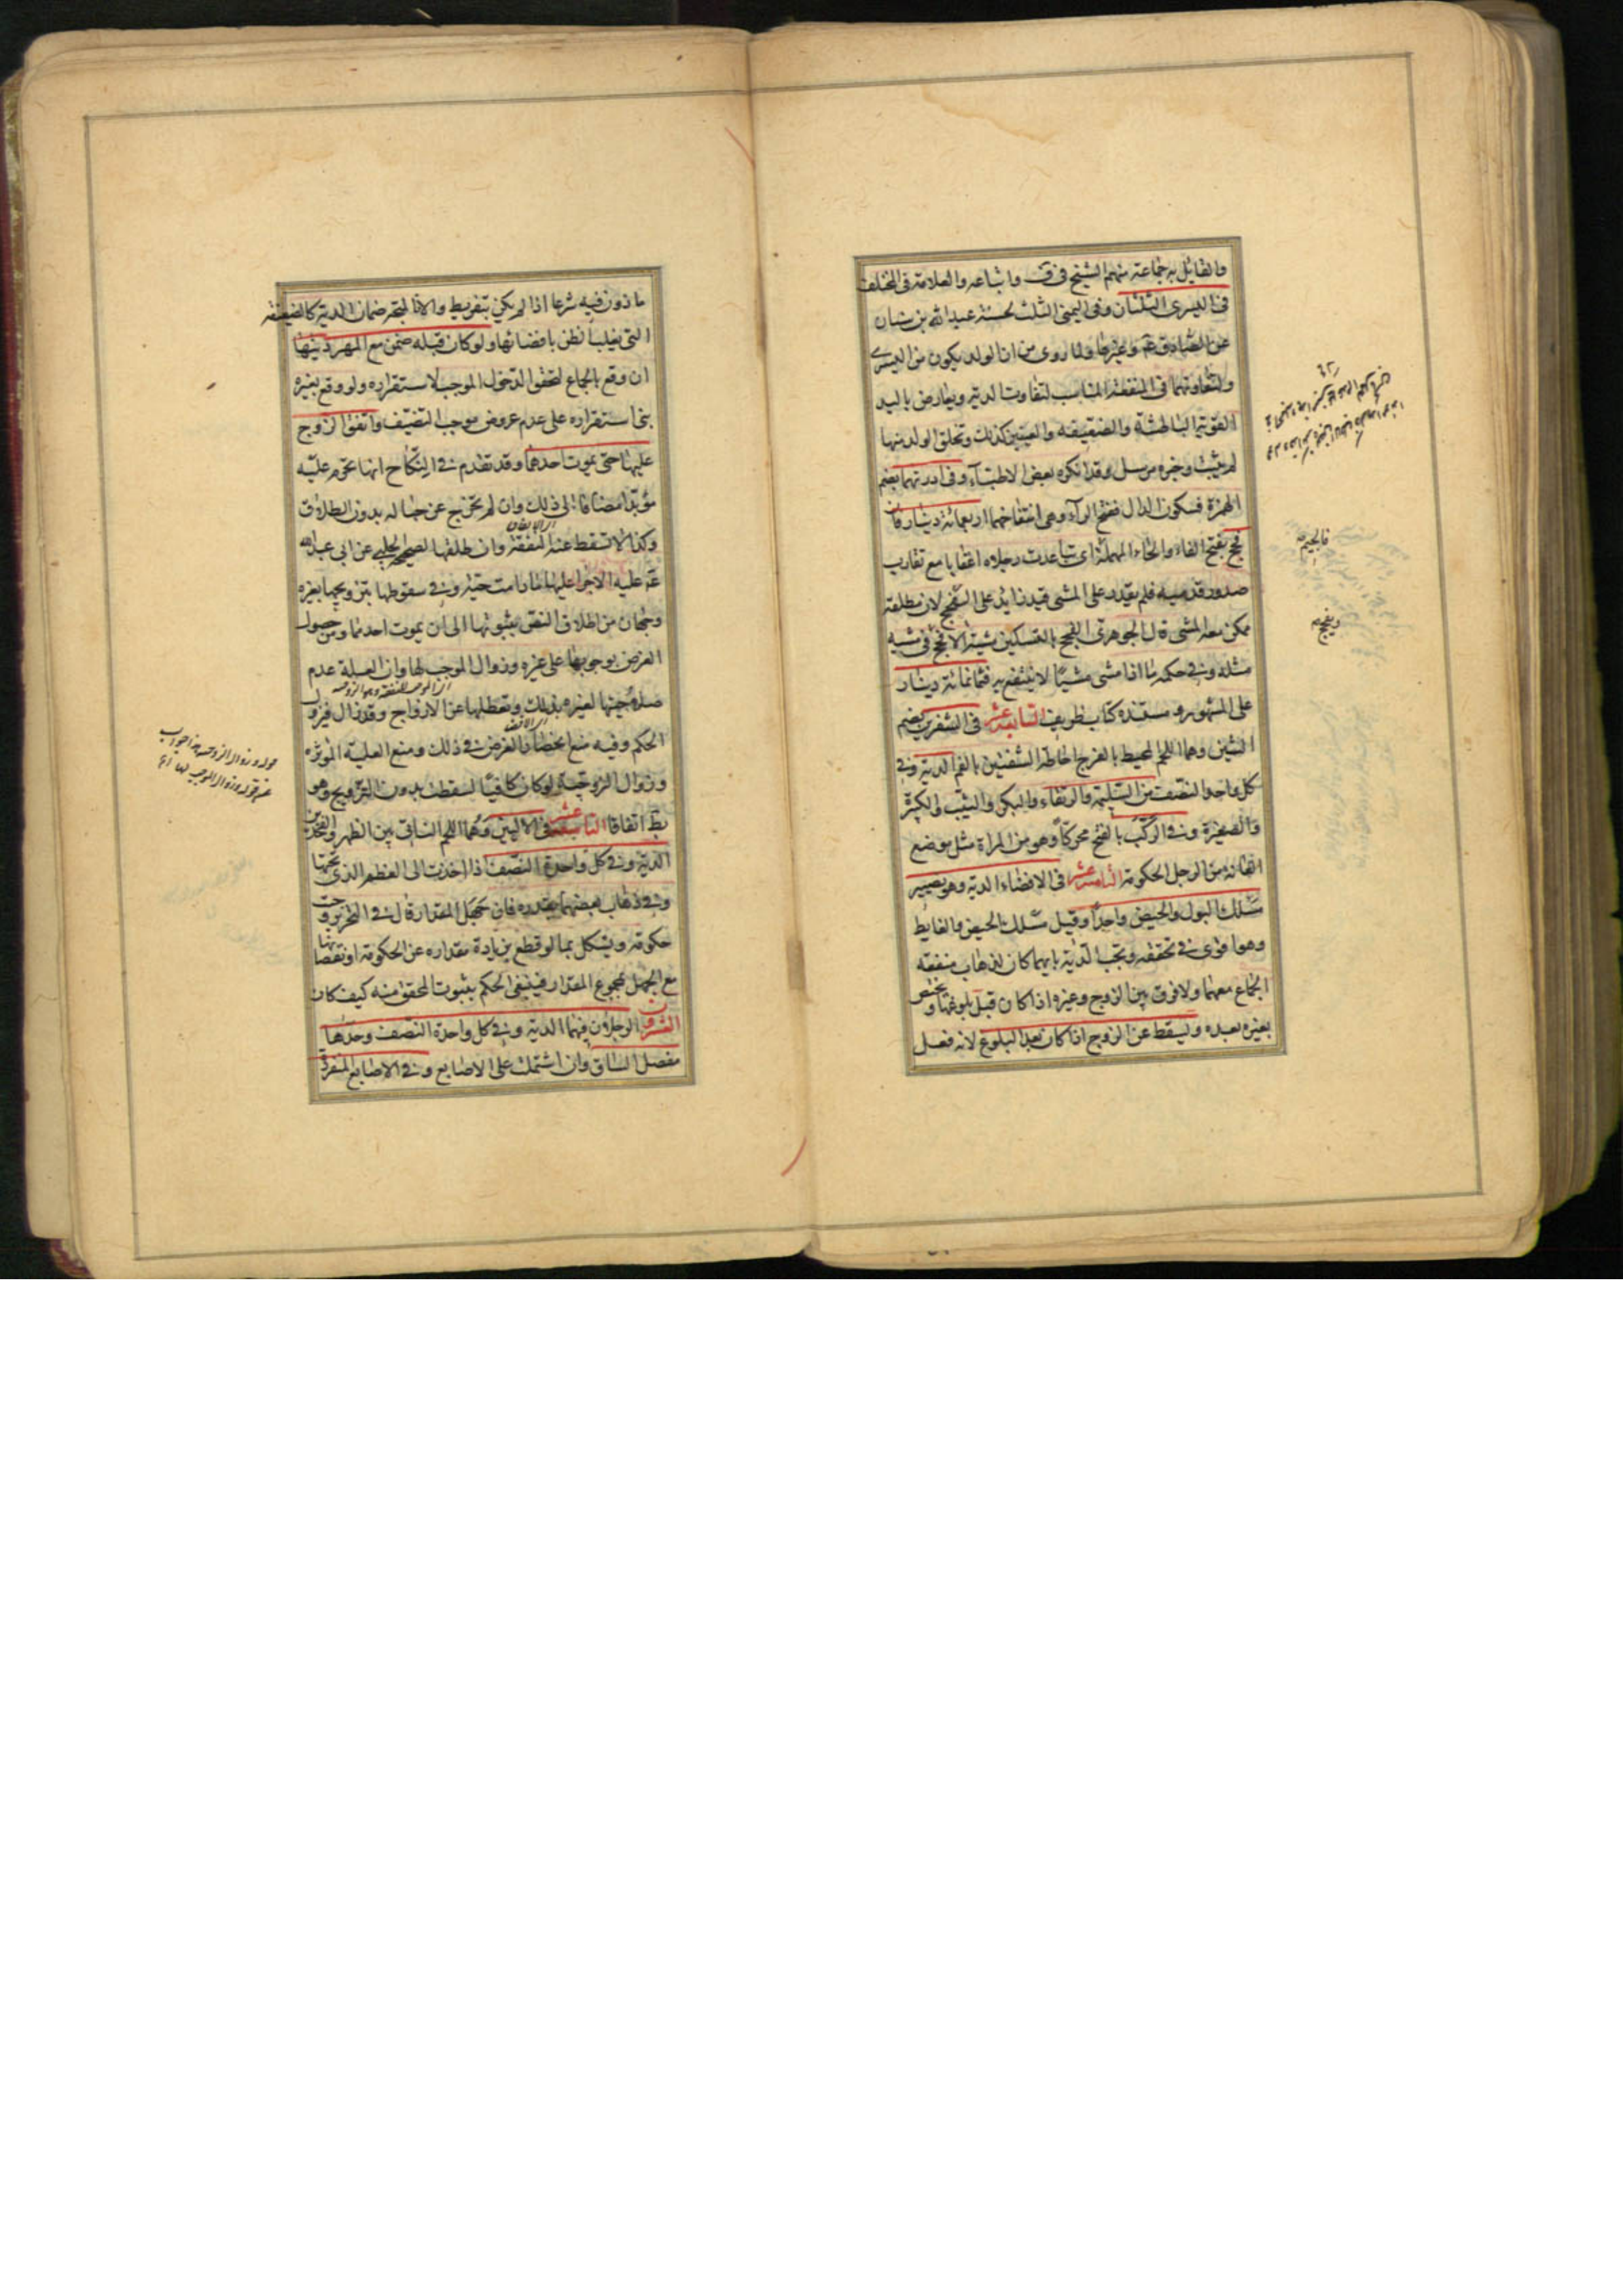 والقائل به جماعة منهم الشيخ في ف واتباعه والعلامة في المختلف
في اليسرى الثلثان وفي اليمنى الثلث لحسنة عبد الله بن سنان
عن الصادق عم وغيرها ولما روى من ان الولد يكون من اليسرى
ولتفاوتهما في المنفعة المناسب لتفاوت الدية ويعارض باليد
القوية الباطشة والضعيفة والعينين كذلك وتخلق الولد منها
لم يثبت وخبره مرسل وقد انكره بعض الاطباء وفي ادرتهما بضم
الهمزة فسكون الدال ففتح الراء وهي انتفاخهما اربعمائة دينار فان
فحج بفتح الفاء والحاء المهملة اى تباعدت رجلاه اعقابا مع تقارب
صدور قدميه فلم يقدر على المشى قيد زايد على الفحج لان مطلقه
يمكن معه المشى قال الجوهرى الفحج بالتسكين مشية الافحج في مشيه
مثله وفي حكمه ما اذا مشى مشيا لا ينتفع به فثمانمائة دينار
على المشهور ومستنده كتاب ظريف السابعة عشر في الشفرين بضم
الشين وهما اللحم المحيط بالفرج احاطة الشفتين بالفم الدية وفي
كل واحد النصف من السليمة والرتقاء والبكر والثيب والكبيرة
والصغيرة وفي الركب بالفتح محركا وهو من المراة مثل موضع
العانة من الرجل الحكومة الثامنة عشر في الافضاء الدية وهو تصيير
مسلك البول والحيض واحدا وقيل مسلك الحيض والغايط
وهو اقوى في تحققه وتجب الدية بايهما كان لذهاب منفعة
الجماع معهما ولا فرق بين الزوج وغيره اذا كان قبل بلوغها ويختص
بغيره بعده ويسقط عن الزوج اذا كان بعد البلوغ لانه فعل
فالجيم
ويفحج
ماذون فيه شرعا اذا لم يكن بتفريط والا فالمتجه ضمان الدية كالضعيفة
التي يغلب الظن بافضائها ولو كان قبله ضمن مع المهر ديتها
ان وقع بالجماع لتحقق الدخول الموجب لاستقراره ولو وقع بغيره
بنى استقراره على عدم عروض موجب التنصيف وانفق الزوج
عليها حتى يموت احدهما وقد تقدم في النكاح انها تحرم عليه
مؤبدا مضافا الى ذلك وان لم تخرج عن حباله بدون الطلاق
وكذا لا تسقط عنه النفقة وان طلقها لصحيحة الحلبي عن ابي عبد الله
عم عليه الاجراء عليها ما دامت حية وفي سقوطها بتزويجها بغيره
وجهان من اطلاق النص بثبوتها الى ان يموت احدهما ومن حصول
الغرض بوجوبها على غيره وزوال الموجب لها وان العلة عدم
صلاحيتها لغيره بذلك وتعطلها عن الازواج وقد زال فيزول
الحكم وفيه منع انحصار الغرض في ذلك ومنع العلية المؤثرة
وزوال الزوجية لو كان كافيا لسقطت بدون التزويج وهو
بط اتفاقا التاسعة عشر في الاليين وهما اللحم الناتى بين الظهر والفخذين
الدية وفي كل واحدة النصف اذا اخذت الى العظم الذي تحتها
وفي ذهاب بعضهما بقدره فان جهل المقدار قال في التحرير وجبت
حكومة ويشكل بما لو قطع بزيادة مقداره عن الحكومة او نقصانها
مع الجهل بمجموع المقدار فينبغى الحكم بثبوت المحقق منه كيف كان
العشرون الرجلان فيهما الدية وفي كل واحدة النصف وحدها
مفصل الساق وان اشتملت على الاصابع وفي الاصابع المنفردة